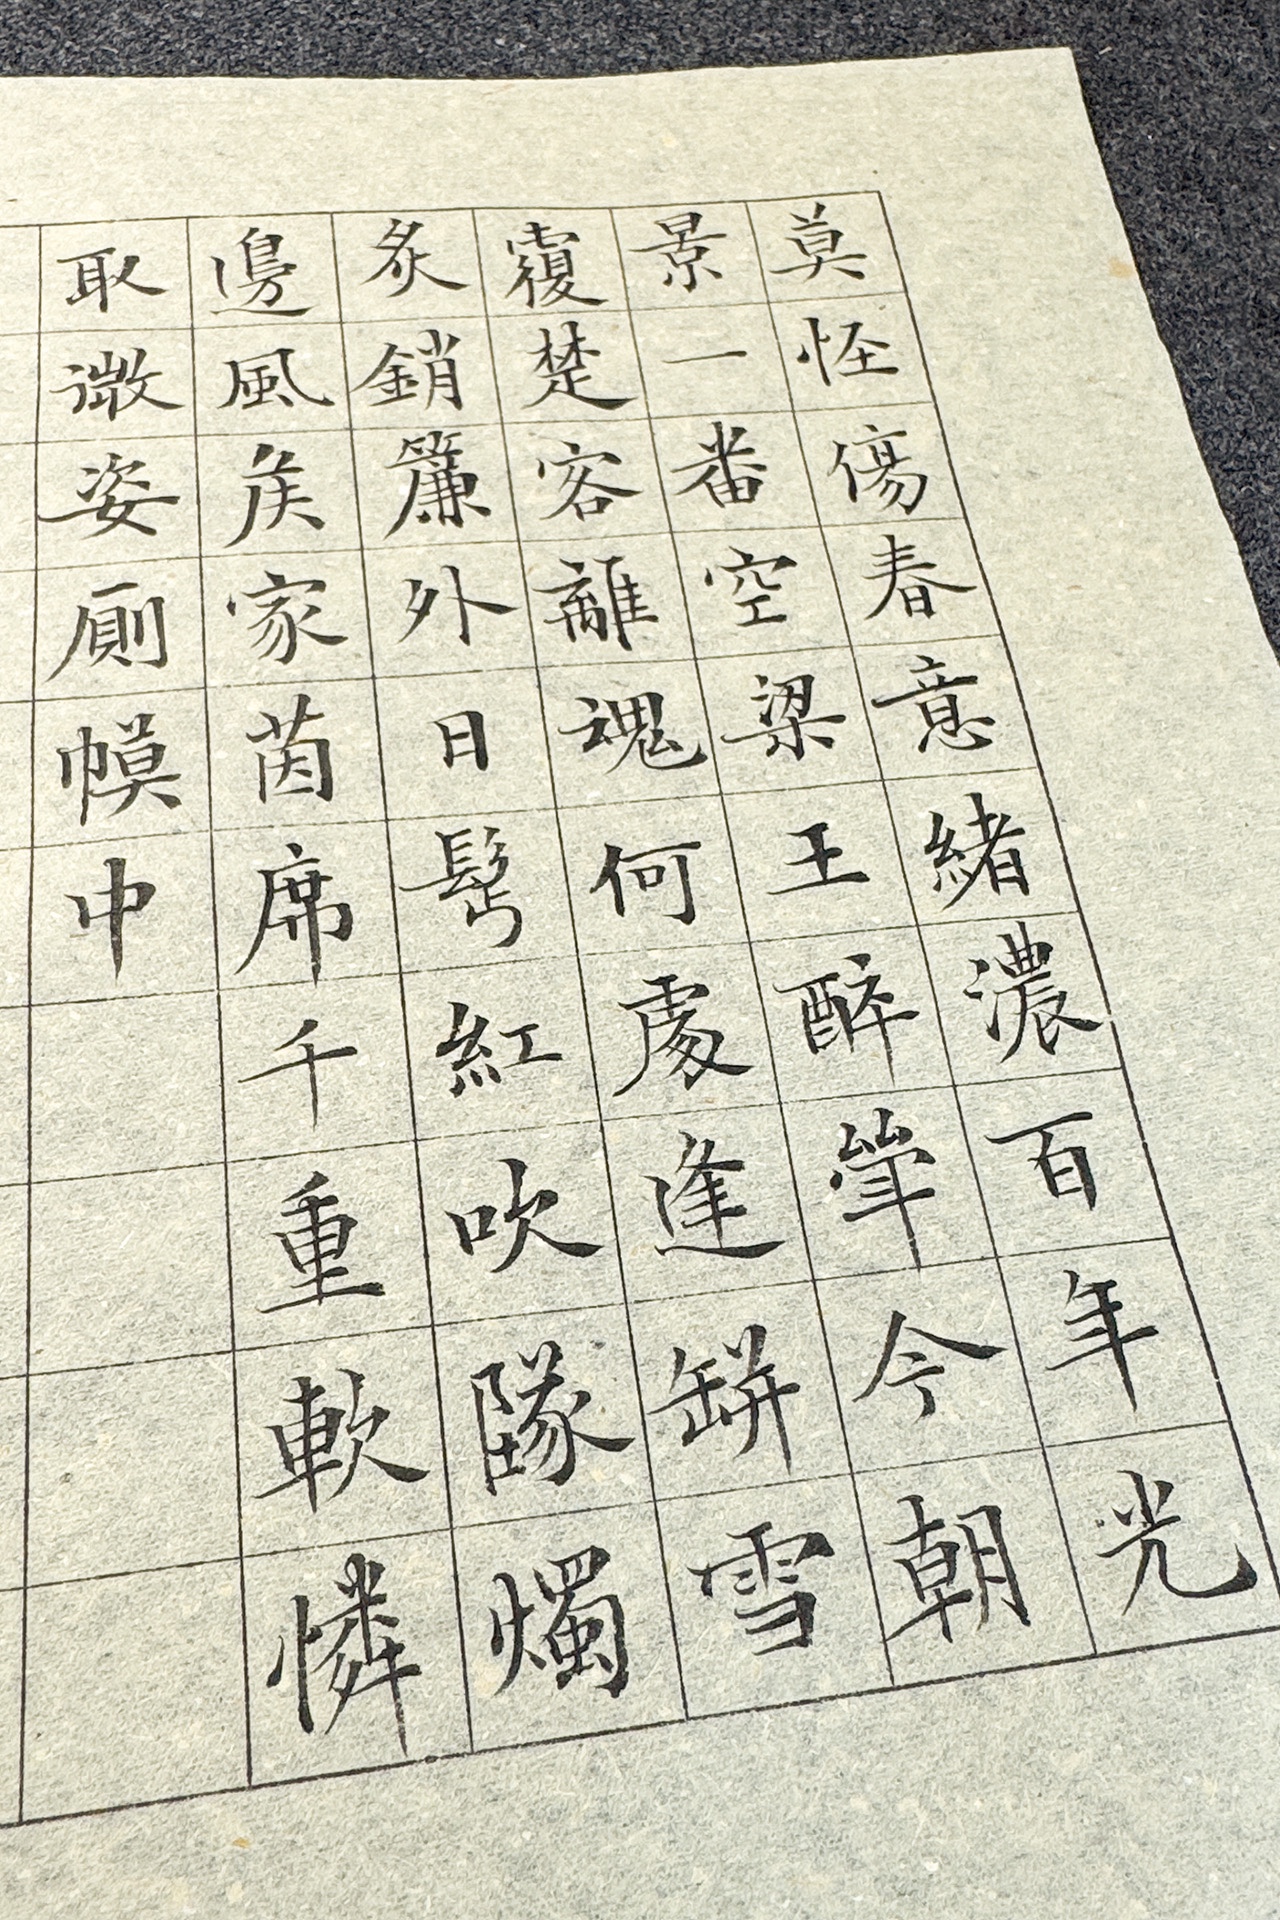 莫怪傷春意緒濃百年光
景一番空梁王醉斝今朝
覆楚客離魂何處逢缾雪
炙銷簾外日髩紅吹墜燭
邊風矦家茵席千重軟憐
取微姿厠幙中